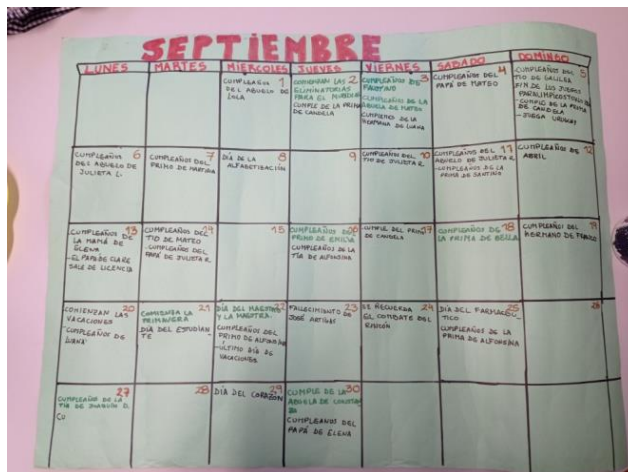 SEPTIEMBRE
LUNES MARTES MIERCOLES JUEVES VIERNES SABADO DOMINGO
1
CUMPLEAÑOS
DEL ABUELO DE
LOLA
2
COMIENZAN LAS
ELIMINATORIAS
PARA EL MUNDIAL
CUMPLE DE LA PRIMA
DE CANDELA
3
CUMPLEAÑOS DE
FAUSTINO
CUMPLEAÑOS DE LA
ABUELA DE MATEO
CUMPLEAÑOS DE LA
HERMANA DE LUANA
4
CUMPLEAÑOS DEL
PAPÁ DE MATEO
5
CUMPLEAÑOS DEL
TIO DE
FIN DE LOS JUEGOS
PARALIMPICOS
-CUMPLE DE LA PRIMA
DE CANDELA
-JUEGA URUGUAY
6
CUMPLEAÑOS
DEL ABUELO DE
JULIETA L.
7
CUMPLEAÑOS DEL
PRIMO DE MARTINA
8
DÍA DE LA
ALFABETIZACIÓN
9
10
CUMPLEAÑOS DEL
TIO DE JULIETA R.
11
CUMPLEAÑOS DEL
ABUELO DE JULIETA R.
-CUMPLEAÑOS DE LA
PRIMA DE SANTINO
12
CUMPLEAÑOS DE
ABRIL
13
CUMPLEAÑOS DE
LA MAMÁ DE
ELENA
-EL PAPÁ DE CLARE
SALE DE LICENCIA
14
CUMPLEAÑOS DEL
TIO DE MATEO
-CUMPLEAÑOS DEL
PAPÁ DE JULIETA R.
15
16
CUMPLEAÑOS DEL
PRIMO DE EMILIA
CUMPLEAÑOS DE LA
TÍA DE ALFONSINA
17
CUMPLE DEL PRIMO
DE CANDELA
18
CUMPLEAÑOS DE
LA PRIMA DE BELLA
19
CUMPLEAÑOS DEL
HERMANO DE
20
COMIENZAN LAS
VACACIONES
-CUMPLEAÑOS DE
LUANA
21
COMIENZA LA
PRIMAVERA
DÍA DEL ESTUDIAN
TE
22
DÍA DEL MAESTRO
Y LA MAESTRA.
CUMPLEAÑOS DEL
PRIMO DE ALFONSINA
-ÚLTIMO DÍA DE
VACACIONES
23
FALLECIMIENTO DE
JOSÉ ARTIGAS
24
SE RECUERDA
EL COMBATE DEL
25
DÍA DEL FARMACÉU-
TICO
CUMPLEAÑOS DE LA
PRIMA DE ALFONSINA
26
27
CUMPLEAÑOS DE LA
TÍA DE JOAQUÍN D.
CU
28
29
DÍA DEL CORAZÓN
30
CUMPLE DE LA
ABUELA DE
CUMPLEAÑOS DEL
PAPÁ DE ELENA